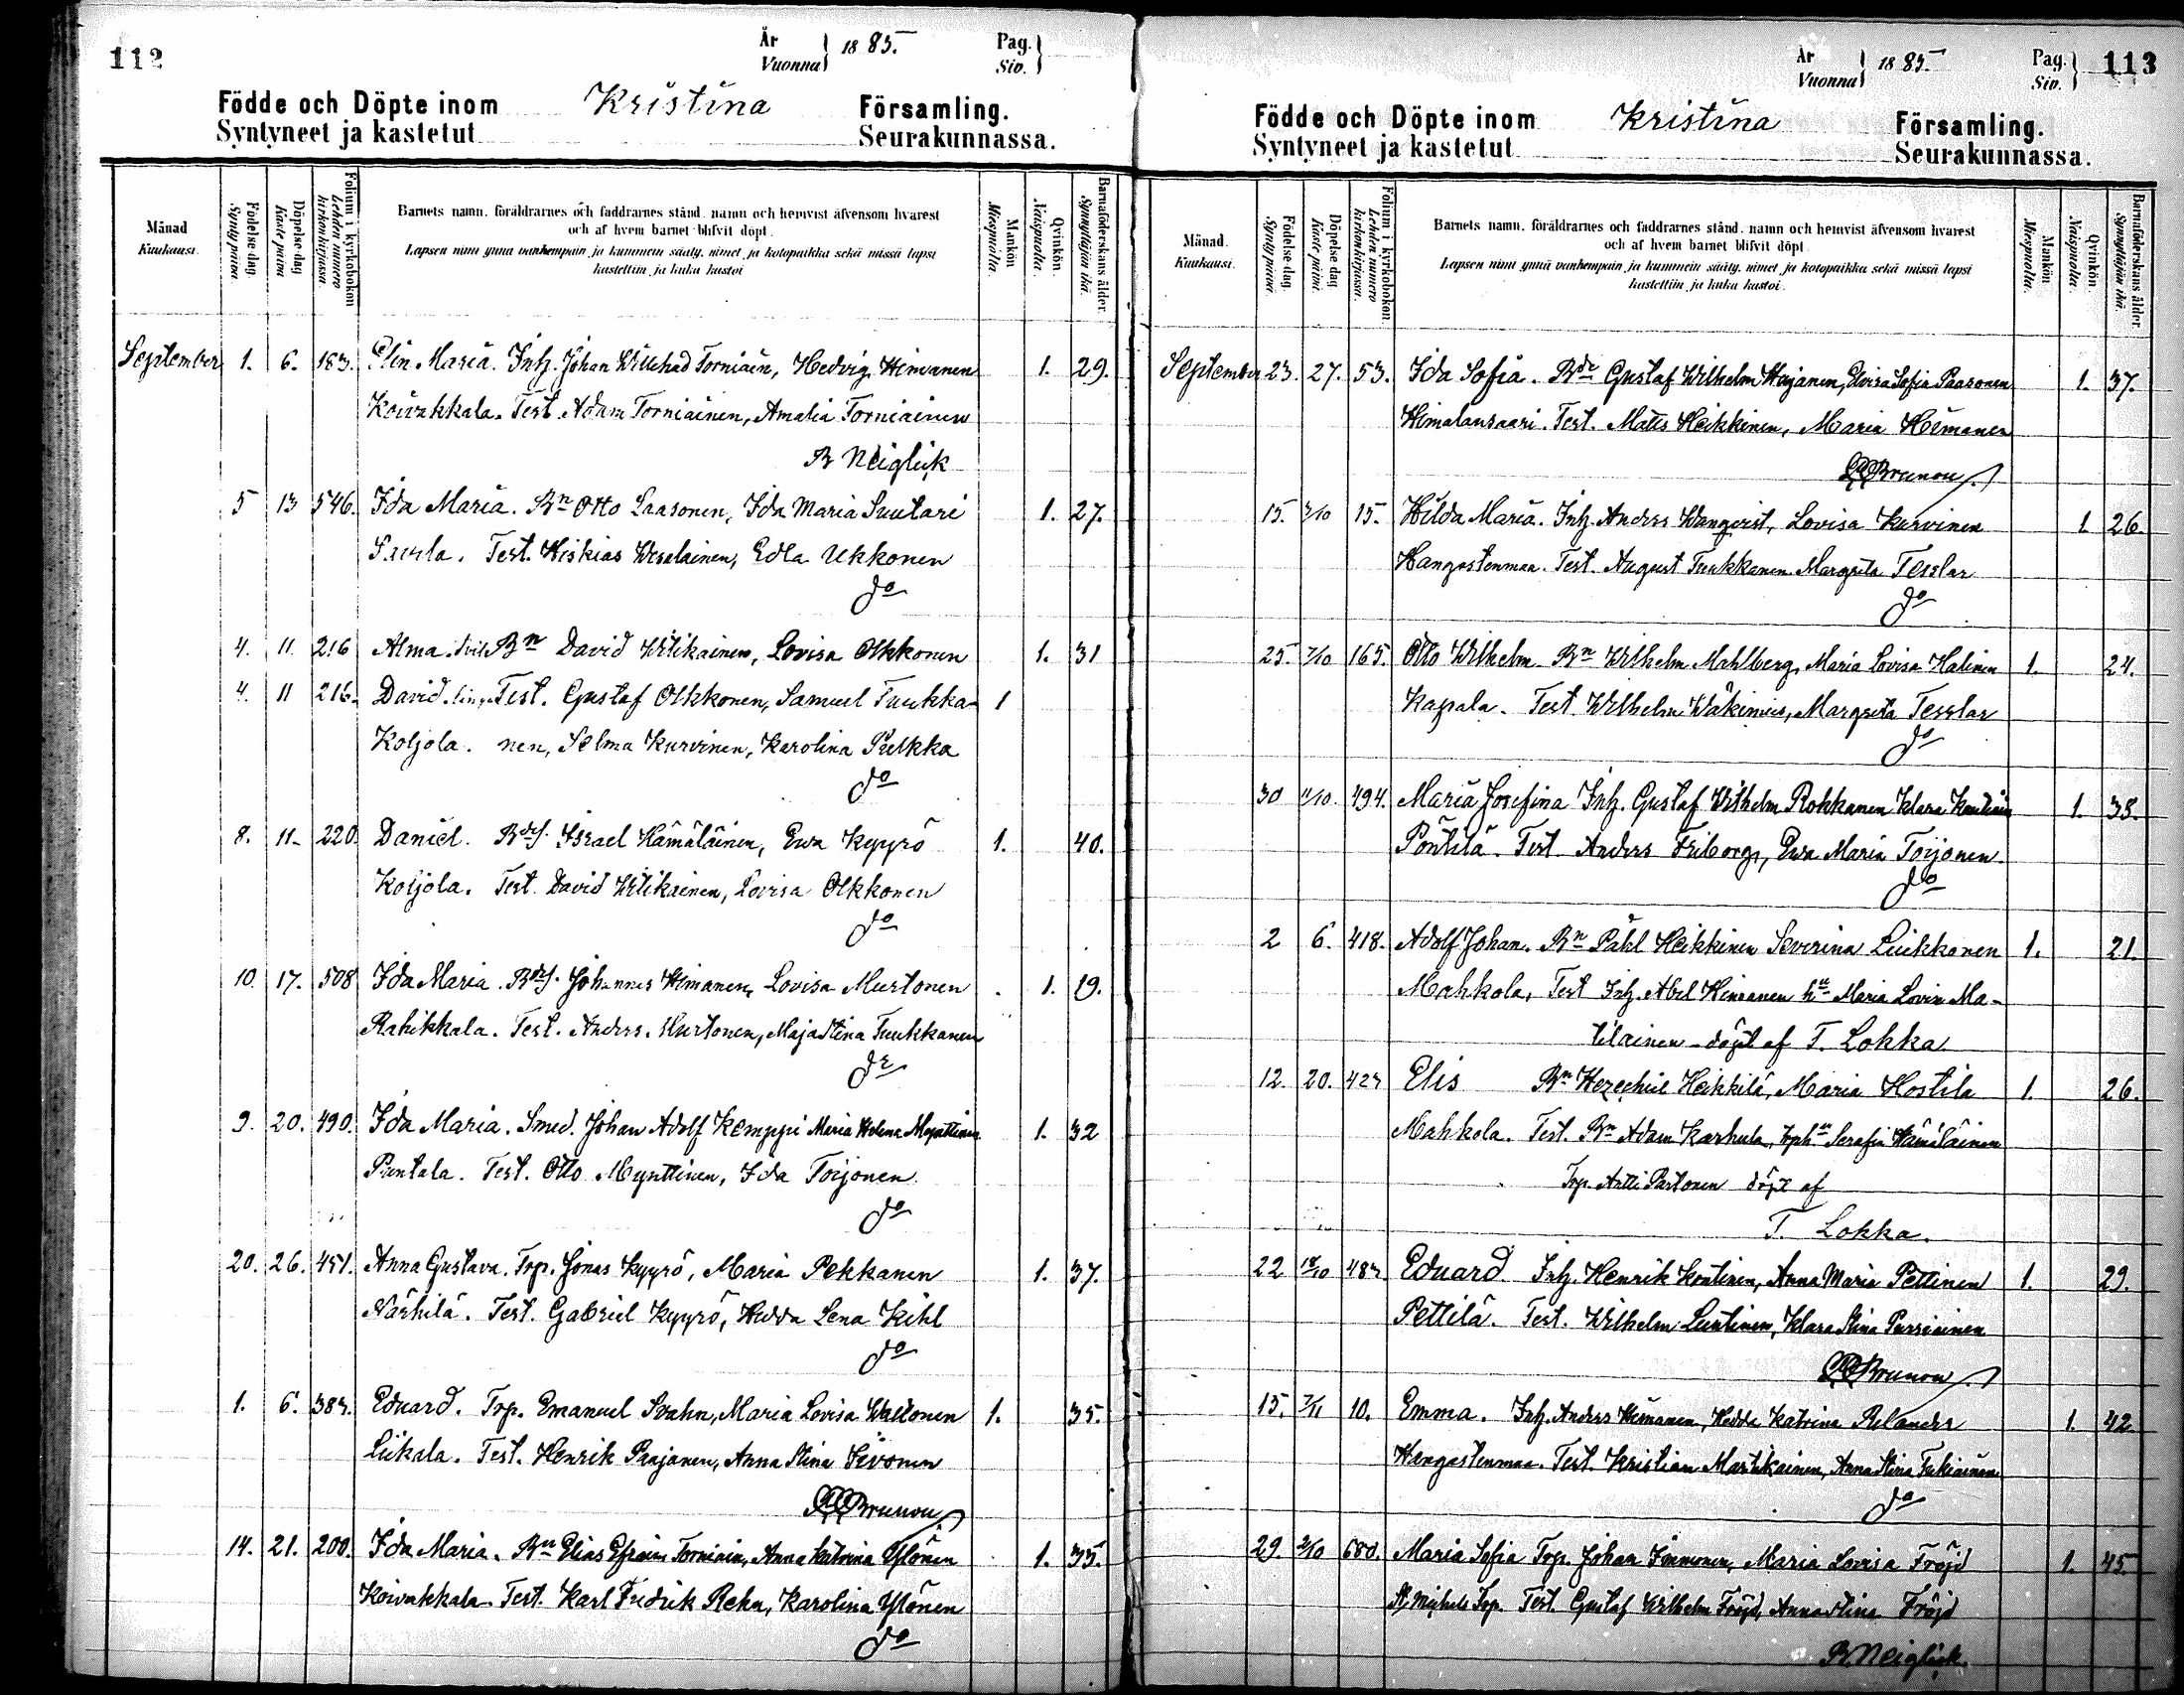 112
År Vuonna } 1885. Pag. Siv. }
Födde och Döpte inom Kristina Församling.
Syntyneet ja kastetut Seurakunnassa.
Månad Kuukausi.
Födelse dag. Synty päivä.
Döpelse dag Kaste päivä
Folium i kyrkobokon Lehden numero kirkonkirjassa.
Barnets namn, föräldrarnes och faddrarnes stånd, namn och hemvist äfvensom hvarest
och af hvem barnet blifvit döpt.
Lapsen nimi ynnä vanhempain ja kummein sääty, nimet ja kotopaikka sekä missä lapsi
kastettiin ja kuka kastoi
Mankön Miespuolta.
Qvinkön. Naispuolta.
Barnaföderskans ålder. Synnyttäjän ikä.
September 1. 6. 183. Elin Maria. Inh. Johan Willehad Torniain, Hedvig Himanen 1. 29.
Koivakkala. Test. Adam Torniainen, Amalia Torniainen
B Neiglick
5 13 546. Ida Maria. Bn Otto Laasonen, Ida Maria Suutari 1. 27.
Savela. Test. Hiskias Wesalainen, Edla Ukkonen
do
4. 11 216 Alma. Bn David Witikainen, Lovisa Olkkonen 1. 31
4. 11 216. David. Test. Gustaf Olkkonen, Samuel Tuukka- 1
Koljola. nen, Selma Kurvinen, Karolina Pulkka
do
8. 11. 220. Daniel. Bdes. Israel Hämäläinen, Ewa Kyyrö 1. 40.
Koljola. Test. David Witikainen, Lovisa Olkkonen
do
10. 17. 508 Ida Maria. Bdes. Johannes Himanen, Lovisa Murtonen 1. 19.
Rahikkala. Test. Anders Murtonen, Maja Stina Tuukkanen
do
9. 20. 490. Ida Maria. Smed. Johan Adolf Kemppi Maria Helena Mynttinen 1. 32
Puntala. Test. Otto Mynttinen, Ida Toijonen
do
20. 26. 451. Anna Gustava. Torp. Jonas Kyyrö, Maria Pekkanen 1. 37.
Närhilä. Test. Gabriel Kyyrö, Hedda Lena Kihl
do
1. 6. Eduard. Torp. Emanuel Svahn, Maria Lovisa Waltonen 1. 35.
Liikala. Test. Henrik Paajanen, Anna Stina Sivonen
Brunou
14. 21. 200. Ida Maria. Bn Elias Efraim Torniain, Anna Katrina Ylönen 1. 35.
Koivakkala Test. Karl Fredrik Rehn, Karolina Ylönen
do
År Vuonna } 1885. Pag. Siv. } 113
Födde och Döpte inom Kristina Församling.
Syntyneet ja kastetut Seurakunnassa.
Månad. Kuukausi.
Födelse dag. Synty päivä.
Döpelse dag Kaste päivä.
Folium i kyrkobokon. Lehden numero kirkonkirjassa.
Barnets namn, föräldrarnes och faddrarnes stånd, namn och hemvist äfvensom hvarest
och af hvem barnet blifvit döpt.
Lapsen nimi ynnä vanhempain ja kummein sääty, nimet ja kotopaikka sekä missä lapsi
kastettiin ja kuka kastoi.
Mankön Miespuolta.
Qvinkön. Naispuolta.
Barnaföderskans ålder. Synnyttäjän ikä.
September 23. 27. 53. Ida Sofia. Bde Gustaf Wilhelm Hajanen, Lovisa Sofia Paasonen 1. 37.
Himalansaari. Test. Matts Heikkinen, Maria Himanen
Brunou
15. 15. Hilda Maria. Inh. Anders Wanqvist, Lovisa Kurvinen 1. 26.
Hangastenmaa. Test. August Tuukkanen Margreta Tesslar
do
25. 7/10 165. Otto Wilhelm Bn Wilhelm Mahlberg, Maria Lovisa Halinen 1. 24.
Kapala. Test. Wilhelm Margreta Tesslar
do
30 11/10. 494. Maria Josefina Inh. Gustaf Wilhelm Rokkanen Klara 1. 38.
Pöntilä. Test Anders Friborg, Ewa Maria Toijonen
do
2 6. 418. Adolf Johan. Bn Påhl Heikkinen Severina Liukkonen 1. 21.
Mahkola, Test Inh. Abel Himanen Maria Lovisa Ma-
tilainen döpt af T. Lokka
12. 20. Elis Bn Hezechiel Heikkilä, Maria Hostila 1. 26.
Mahkola. Test. Bn Adam Karhula, Serafia Hämäläinen
Torp. Antti Partonen döpt af
T. Lokka.
22 18/10 Eduard Inh. Henrik Kontinen, Anna Maria Pettinen 1. 29.
Pettilä. Test. Wilhelm Luntinen, Klara Stina Pursiainen
Brunou
15. 10. Emma. Inh. Anders Himanen, Hedda Katrina Relander 1. 42
Hangastenmaa. Test. Kristian Martikainen, Anna Stina Tukiainen
do
29. 680. Maria Sofia Torp. Johan Immonen, Maria Lovisa Fröjd 1. 45.
St Michels Test. Gustaf Wilhelm Fröjd, Anna Stina Fröjd
B. Neiglick.